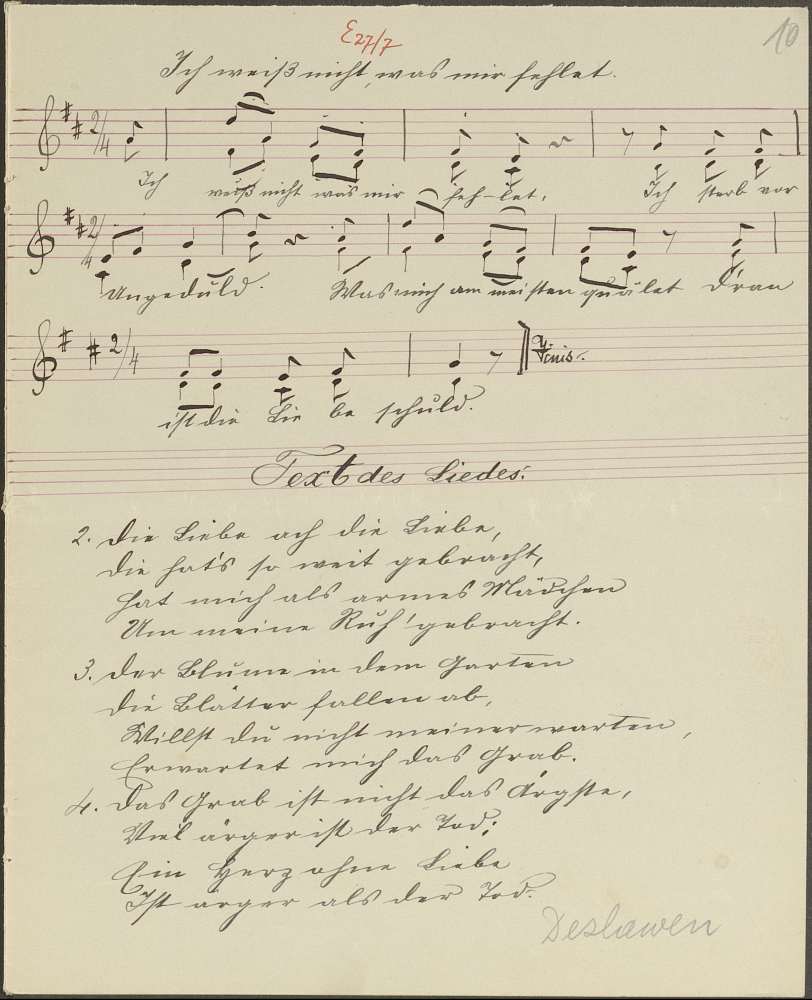 E 27/7
10
Ich weiß nicht, was mir fehlet.
2/4
Ich weiß nicht was mir feh-let, Ich sterb vor
2/4
Ungeduld. Was mich am meisten quälet Dran
2/4 Finis.
ist die Lie be schuld.
Text des Liedes:
2. Die Liebe ach die Liebe,
Die hat's so weit gebracht,
Hat mich als armes Mädchen
Um meine Ruh' gebracht.
3. Der Blume in dem Garten
Die Blätter fallen ab,
Willst du nicht meiner warten,
Erwartet mich das Grab.
4. Das Grab ist nicht das Ärgste,
Viel ärger ist der Tod;
Ein Herz ohne Liebe
Ist ärger als der Tod.
Deslawen